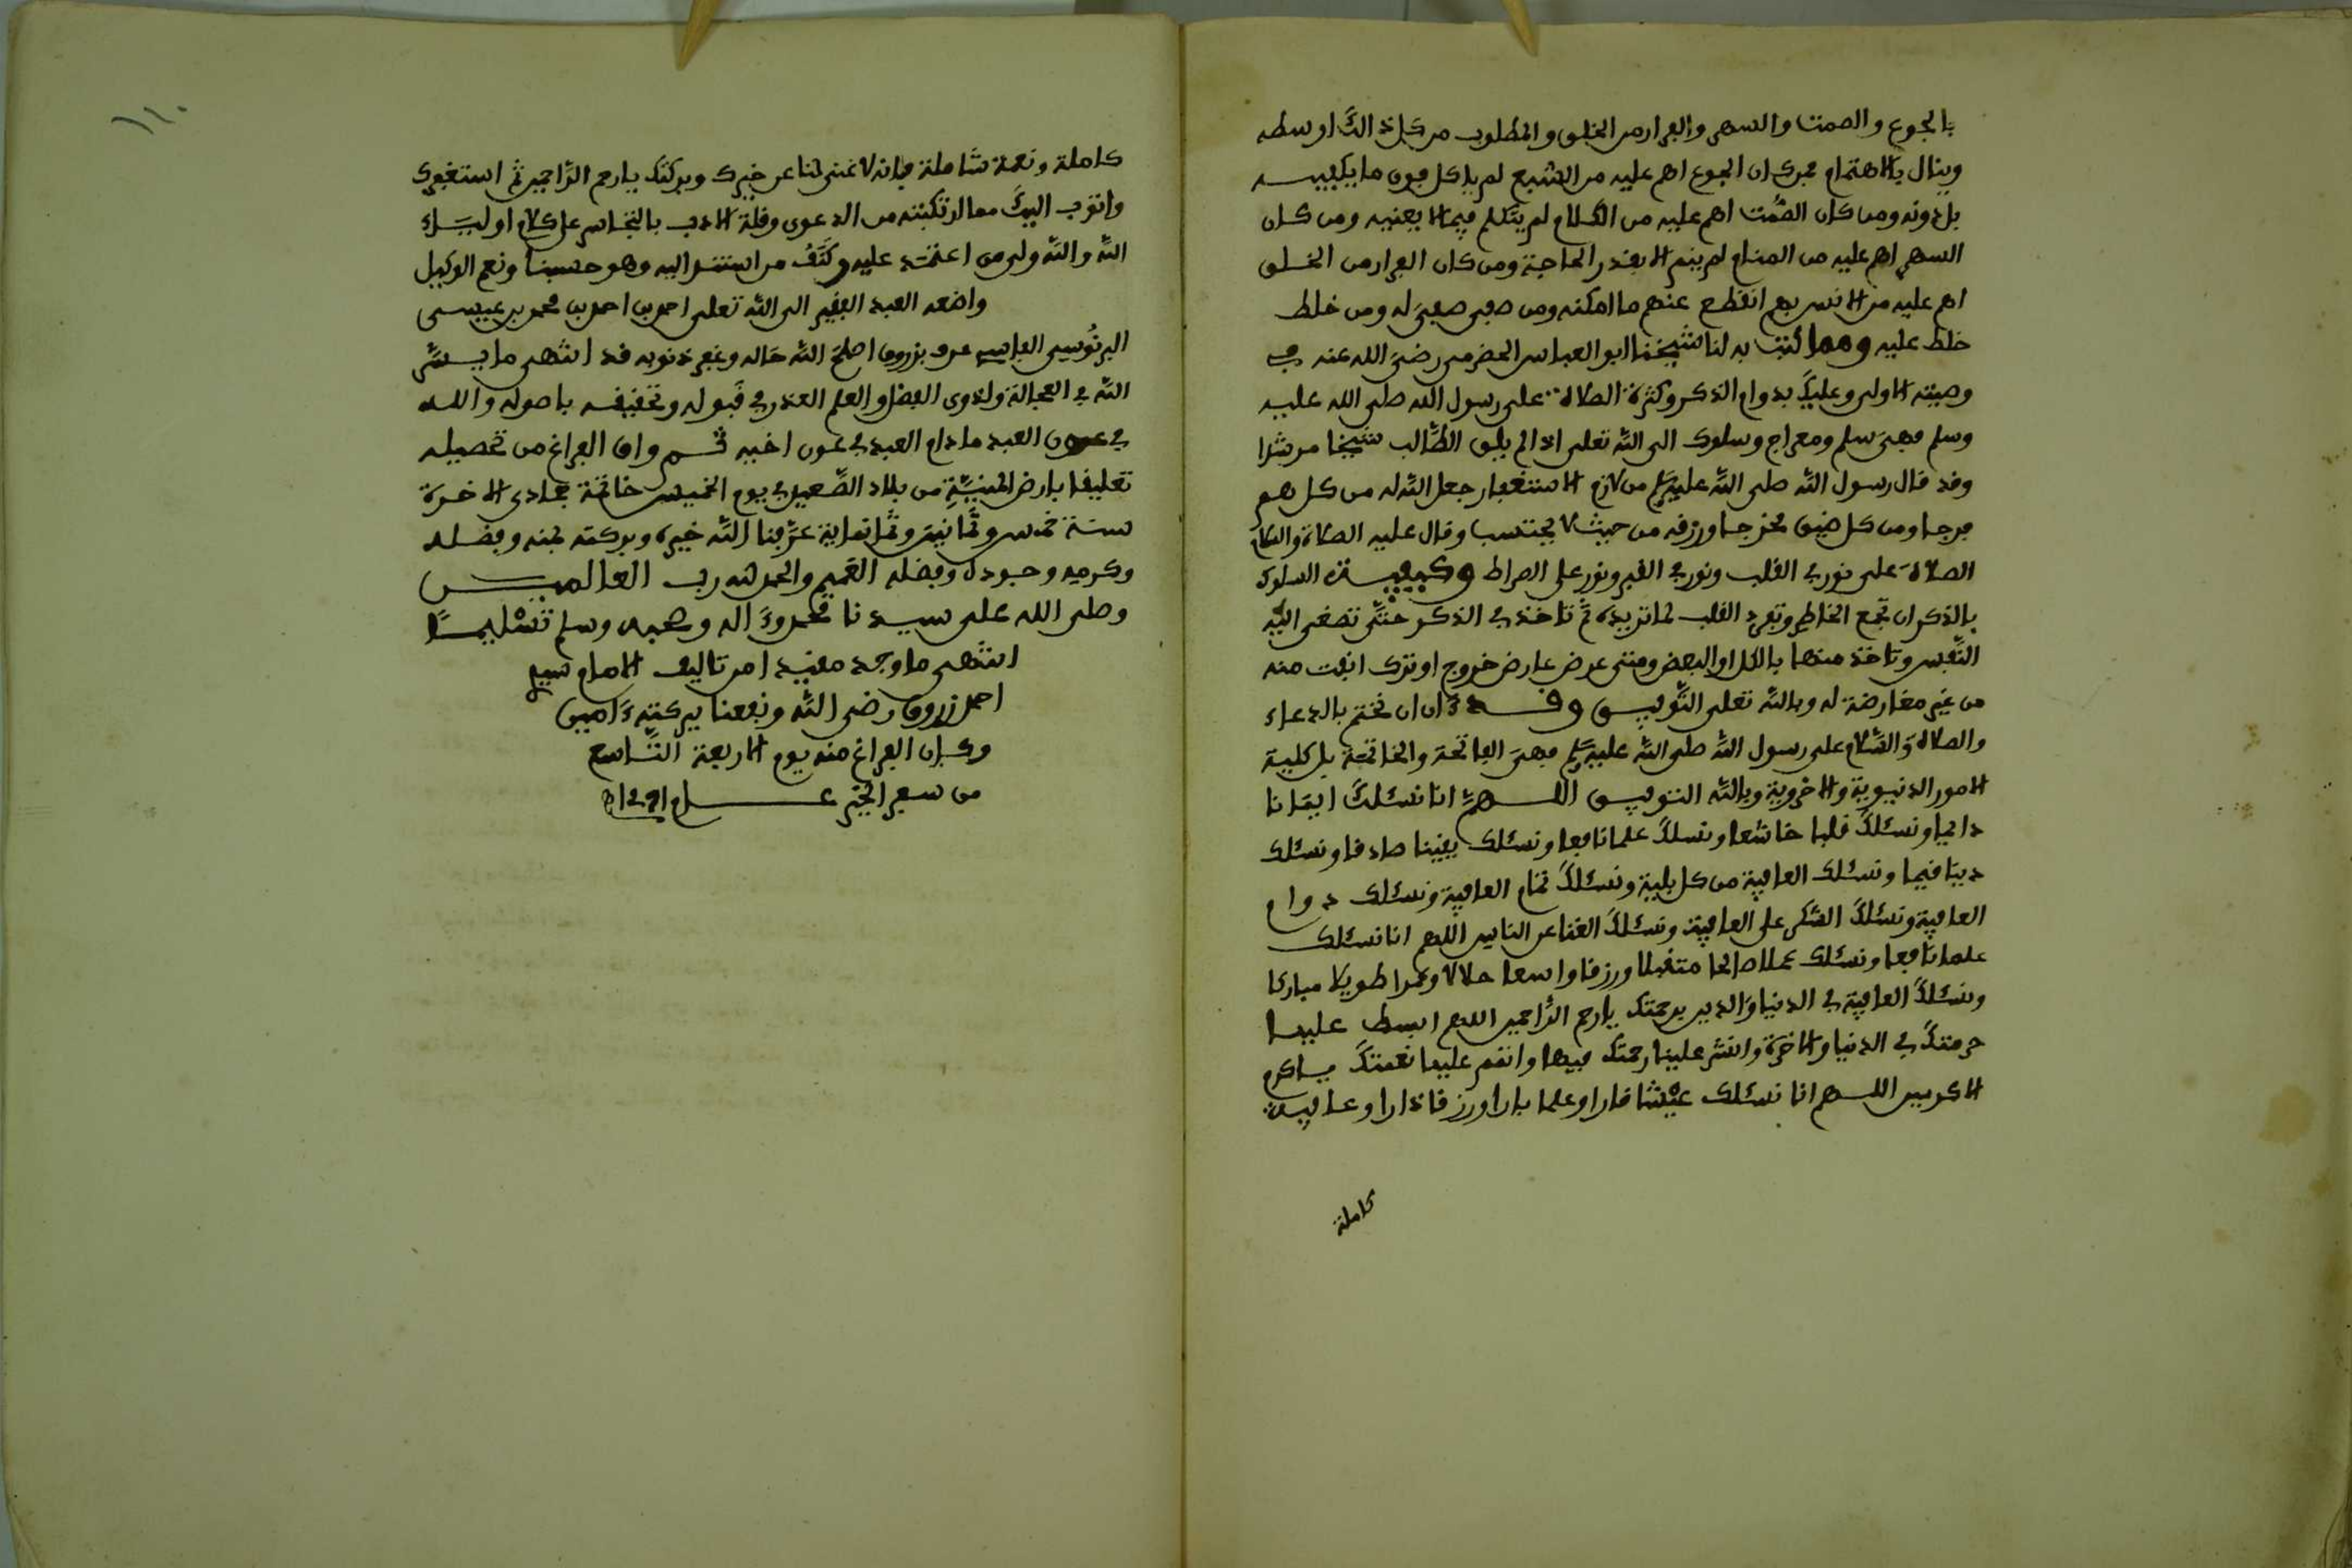 بالجوع والصمت والسهر والفرار من الخلق والمطلوب من كل ذالك اوسطه
وينال بالاهتمام فمن كان الجوع اهم عليه من الشبع لم ياكل فوق ما يكفيه
بل دونه ومن كان الصمت اهم عليه من الكلام لم يتكلم فيما لا يعنيه ومن كان
السهر اهم عليه من المنام لم ينم الا بقدر الحاجة ومن كان الفرار من الخلق
اهم عليه من الانس بهم انقطع عنهم ما امكنه ومن صفى صفي له ومن خلط
خلط عليه ومما كتب به لنا شيخنا ابو العباس الحضرمي رضي الله عنه في
وصيته الاولى وعليك بدوام الذكر وكثرة الصلاة على رسول الله صلى الله عليه
وسلم فهي سلم ومعراج وسلوك الى الله تعلى اذا لم يلق الطالب شيخا مرشدا
وقد قال رسول الله صلى الله عليه وسلم من لازم الاستغفار جعل الله له من كل هم
فرجا ومن كل ضيق مخرجا ورزقه من حيث لا يحتسب وقال عليه الصلاة والسلام
الصلاة علي نور في القلب ونور في القبر ونور على الصراط وكيفية السلوك
بالذكر ان تجمع الخاطر وتفرد القلب لما تريده ثم تاخذ في الذكر حتى تصغى اليه
النفس وتاخذ منها بالكل او البعض ومتى عرض عارض خروج او ترك انفت منه
من غير معارضة له وبالله تعلى التوفيق وقد ءان ان نختم بالدعاء
والصلاة والسلام على رسول الله صلى الله عليه وسلم فهي الفاتحة والخاتمة بل كلية
الامور الدنيوية والاخروية وبالله التوفيق اللهم انا نسئلك ايمانا
دائما ونسئلك قلبا خاشعا ونسئلك علما نافعا ونسئلك يقينا صادقا ونسئلك
دينا قيما ونسئلك العافية من كل بلية ونسئلك تمام العافية ونسئلك دوام
العافية ونسئلك الشكر على العافية ونسئلك الغنا عن الناس اللهم انا نسئلك
علما نافعا ونسئلك عملا صالحا متقبلا ورزقا واسعا حلالا وعمرا طويلا مباركا
ونسئلك العافية في الدنيا والدين برحمتك يا ارحم الراحمين اللهم ابسط علينا
حرمتك في الدنيا والاخرة وانشر علينا رحمتك فيها واتمم علينا نعمتك يا اكرم
الاكرمين اللهم انا نسئلك عيشا قارا وعلما بارا ورزقا دارا وعافية
كاملة
١١٠
كاملة ونعمة شاملة فانه لا غنى لنا عن خيرك وبركتك يا ارحم الراحمين ثم استغفرك
واتوب اليك مما ارتكبته من الدعوى وقلة الادب بالتجاسر على كلام اولياء
الله والله ولي من اعتمد عليه وكنف من استند اليه وهو حسبنا ونعم الوكيل
واضعه العبد الفقير الى الله تعلى احمد بن احمد بن محمد بن عيسى
البرنوسي الفاسي عرف بزروق اصلح الله حاله وغفر ذنوبه قد انتهى ما يسر
الله في العجالة ولذوى الفضل والعلم العذر في قبوله وتخفيفه باصوله والله
في عون العبد ما دام العبد في عون اخيه ثم وافى الفراغ من تحصيله
تعليقا بارض المنية من بلاد الصعيد في يوم الخميس خاتمة جمادى الاخرة
سنة خمس وثمانين وثمانماية عرفنا الله خيره وبركته بمنه وفضله
وكرمه وجوده وفضله العميم والحمد لله رب العالمين
وصلى الله على سيدنا محمد وءاله وصحبه وسلم تسليما
انتهى ما وجد مقيدا من تاليف الامام سيدي
احمد زروق رضي الله ونفعنا ببركته ءامين
وكان الفراغ منه يوم الاربعة التاسع
من سفر الخير عــام